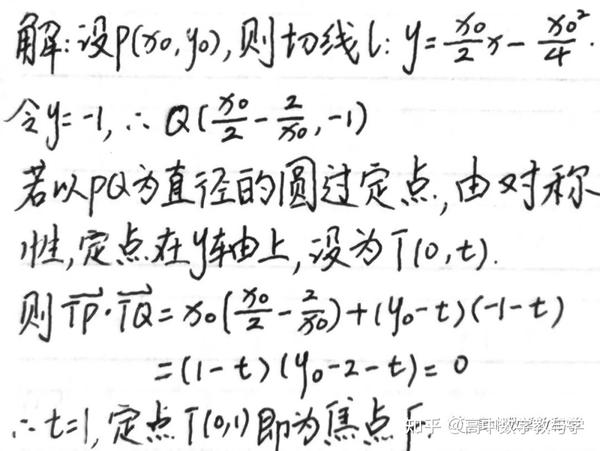 解:设P(x₀,y₀),则切线l: y=x₀/2 x-x₀²/4.
令y=-1,∴Q(x₀/2-2/x₀,-1)
若以PQ为直径的圆过定点,由对称
性,定点在y轴由上,设为T(0,t).
则TP·TQ=x₀(x₀/2-2/x₀)+(y₀-t)(-1-t)
=(1-t)(y₀-2-t)=0
∴t=1,定点T(0,1)即为焦点F.
知乎 @高中数学教与学